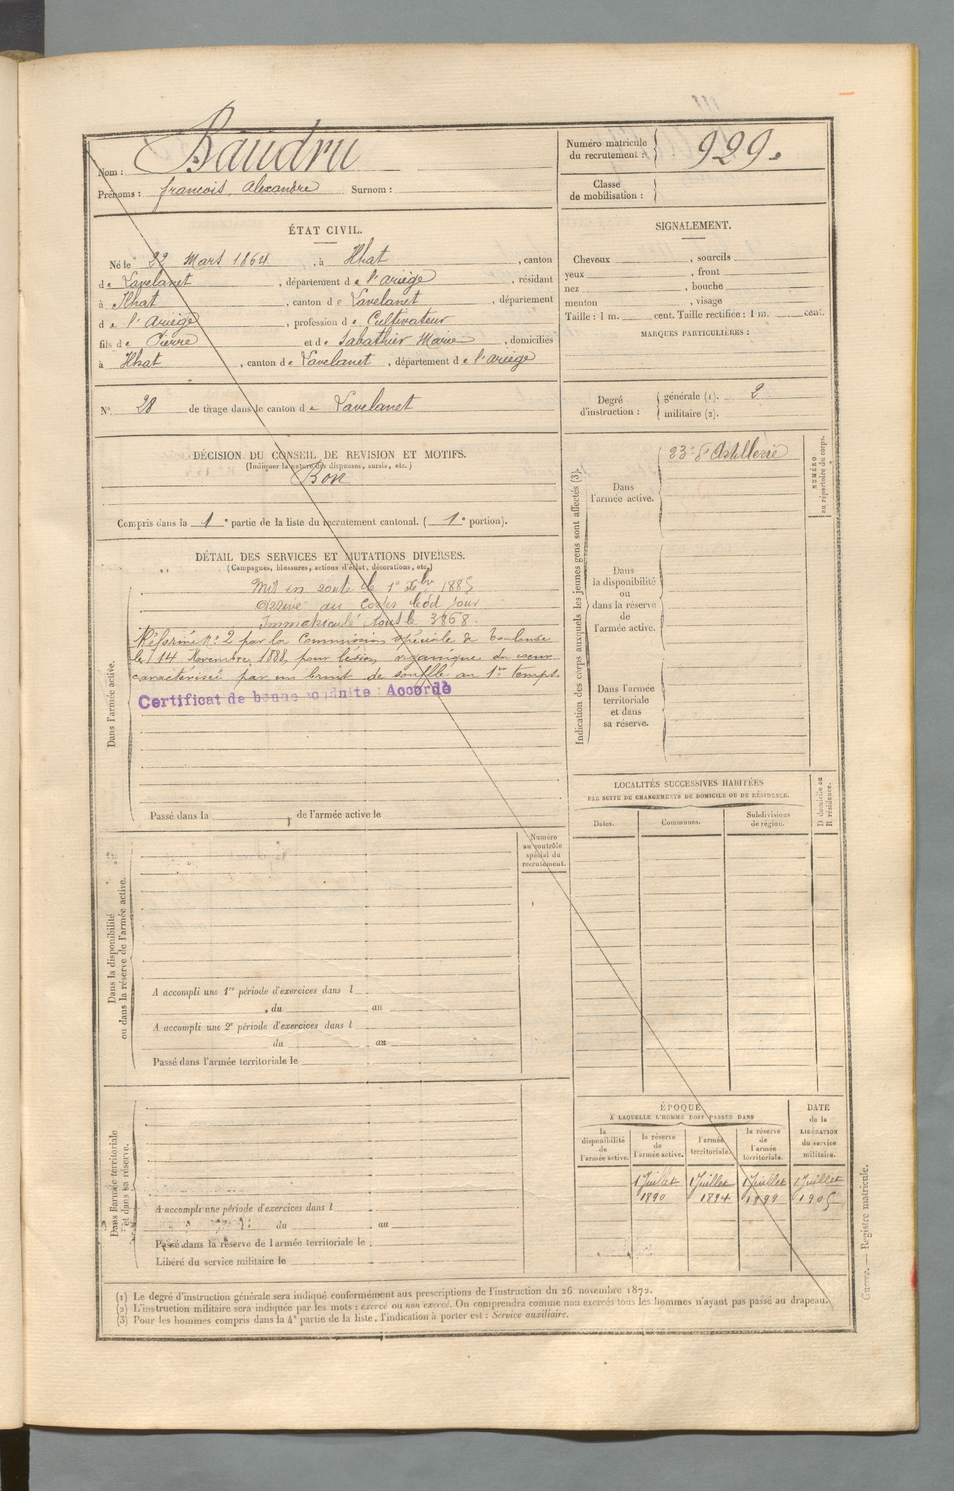 Nom : Baudru
Prénoms : françois Alexandre Surnom :
Numéro matricule du recrutement : 929.
Classe de mobilisation :
ÉTAT CIVIL.
Né le 22 Mars 1864, à Ilhat, canton
de Lavelanet, département de l'ariège, résidant
à Ilhat, canton de Lavelanet, département
de l'Ariège, profession de Cultivateur
fils de Pierre et de Sabathier Marie, domiciliés
à Ilhat, canton de Lavelanet, département de l'ariège
N° 28 de tirage dans le canton de Lavelanet
SIGNALEMENT.
Cheveux , sourcils
yeux , front
nez , bouche
menton , visage
Taille : 1 m. cent. Taille rectifiée : 1 m. cent.
MARQUES PARTICULIÈRES :
Degré d'instruction : générale (1). 2
militaire (2).
DÉCISION DU CONSEIL DE REVISION ET MOTIFS.
(Indiquer la nature des dispenses, sursis, etc.)
Bon
Compris dans la 1e partie de la liste du recrutement cantonal. (1e portion).
DÉTAIL DES SERVICES ET MUTATIONS DIVERSES.
(Campagnes, blessures, actions d'éclat, décorations, etc.)
Dans l'armée active.
Mis en route le 1er Xbre 1885
Arrivé au Corps ledit jour
Immatriculé sous le 3868.
Réformé n° 2 par la Commission spéciale de Toulouse
le 14 Novembre 1888, pour lésion organique du coeur
caractérisée par un bruit de souffle au 1er temps.
Certificat de bonne conduite : Accordé
Passé dans la de l'armée active le
Indication des corps auxquels les jeunes gens sont affectés (3).
Dans l'armée active.
23e d'Artillerie
Dans la disponibilité ou dans la réserve de l'armée active.
Dans l'armée territoriale et dans sa réserve.
NUMÉRO au répertoire du corps.
LOCALITÉS SUCCESSIVES HABITÉES
PAR SUITE DE CHANGEMENTS DE DOMICILE OU DE RÉSIDENCE.
Dates. Communes. Subdivisions de région.
D. domicile ou R. résidence.
Dans la disponibilité ou dans la réserve de l'armée active.
Numéro au contrôle spécial du recrutement.
A accompli une 1re période d'exercices dans l
du au
A accompli une 2e période d'exercices dans l
du au
Passé dans l'armée territoriale le
Dans l'armée territoriale et dans sa réserve.
A accompli une période d'exercices dans l
du au
Passé dans la réserve de l'armée territoriale le
Libéré du service militaire le
ÉPOQUE
À LAQUELLE L'HOMME DOIT PASSER DANS
la disponibilité de l'armée active. la réserve de l'armée active. l'armée territoriale. la réserve de l'armée territoriale.
DATE de la LIBÉRATION du service militaire.
1 Juillet 1890
1 Juillet 1894
1 Juillet 1899
1 Juillet 1905
(1) Le degré d'instruction générale sera indiqué conformément aux prescriptions de l'instruction du 26 novembre 1872.
(2) L'instruction militaire sera indiquée par les mots : exercé ou non exercé. On comprendra comme non exercés tous les hommes n'ayant pas passé au drapeau.
(3) Pour les hommes compris dans la 4e partie de la liste, l'indication à porter est : Service auxiliaire.
Guerre. — Registre matricule.